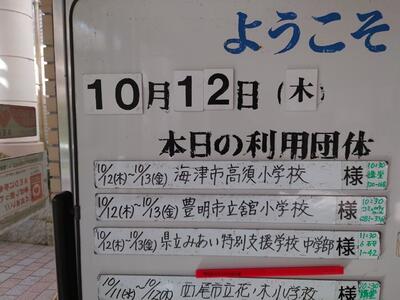 ようこそ
10月12日(木)
本日の利用団体
10/12(木)~10/13(金) 海津市高須小学校 様 10:30
10/12(木)~10/13(金) 豊明市立舘小学校 様 10:30
10/12(木)~10/13(金) 県立みあい特別支援学校 中学部 様 11:30
10/11(水)~10/12(木) 西尾市立花ノ木小学校 様 10:30